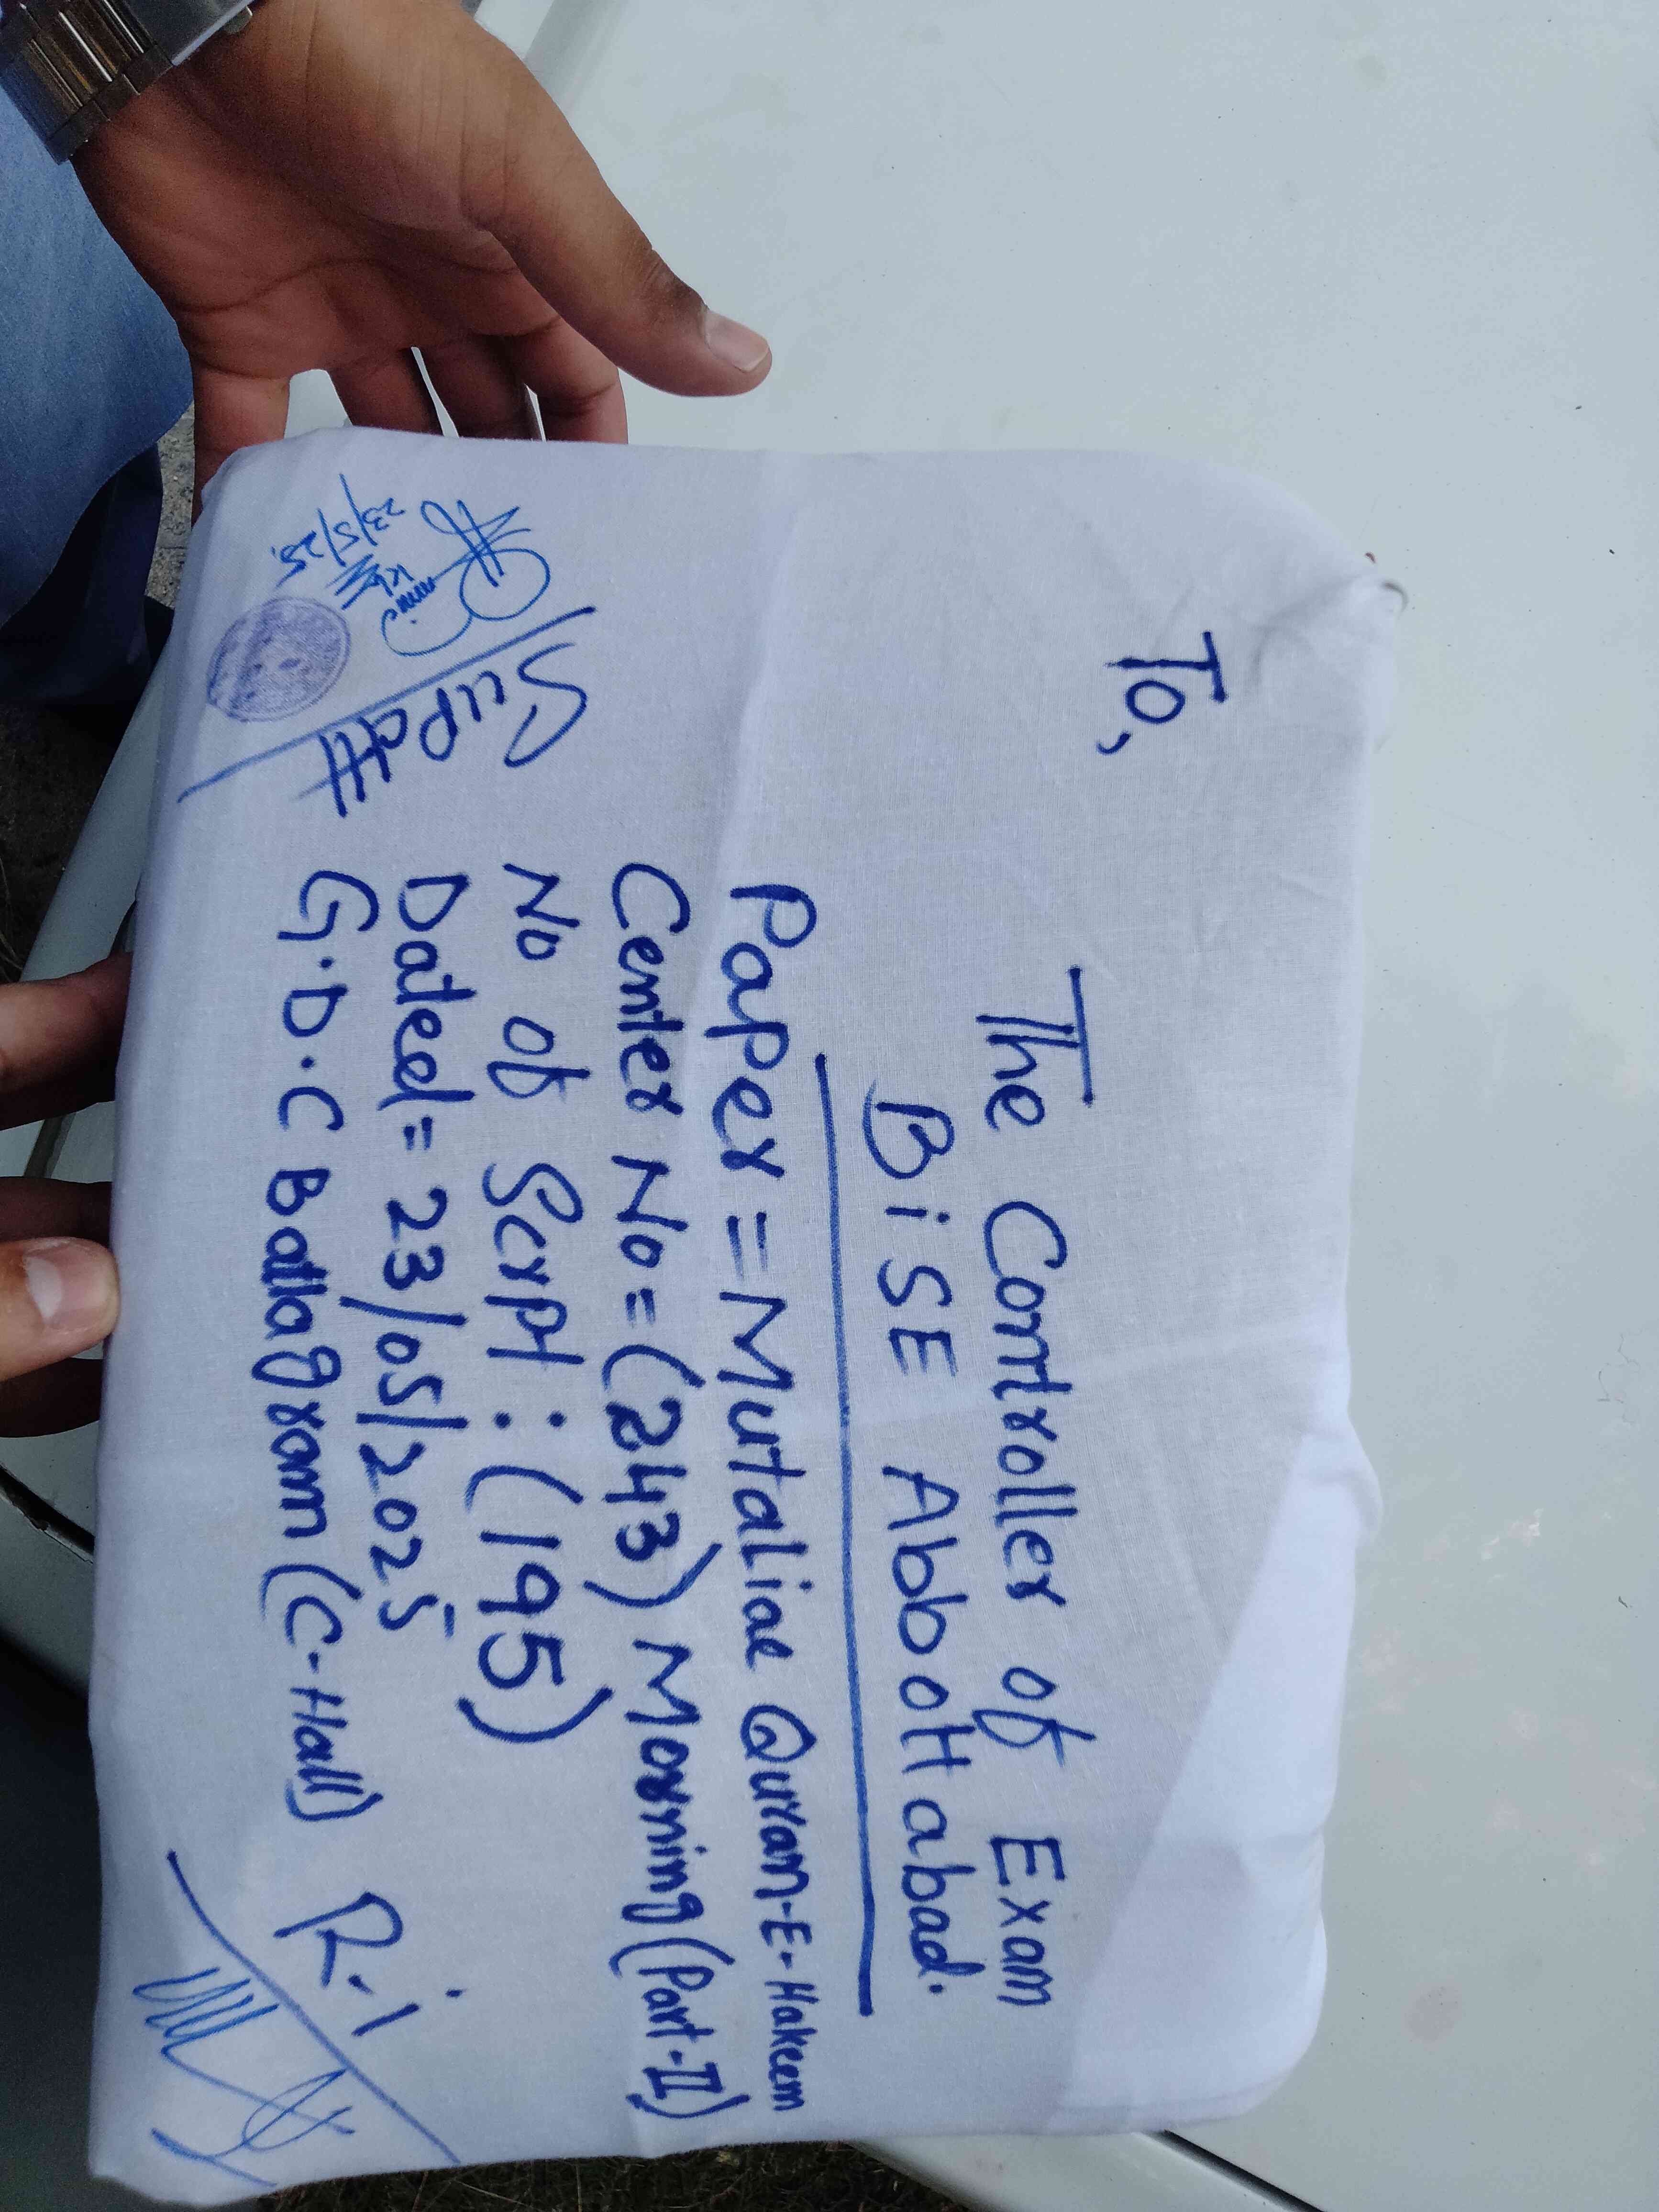 To,
The Controller of Exam
BiSE Abbottabad.
Paper = Mutaliae Quran-E-Hakeem
Center No = (243) Morning (Part-II)
No of Scrpt : (195)
Dated = 23/05/2025
G.D.C Battagram (C-Hall)
Supdtt
23/5/25.
R-i